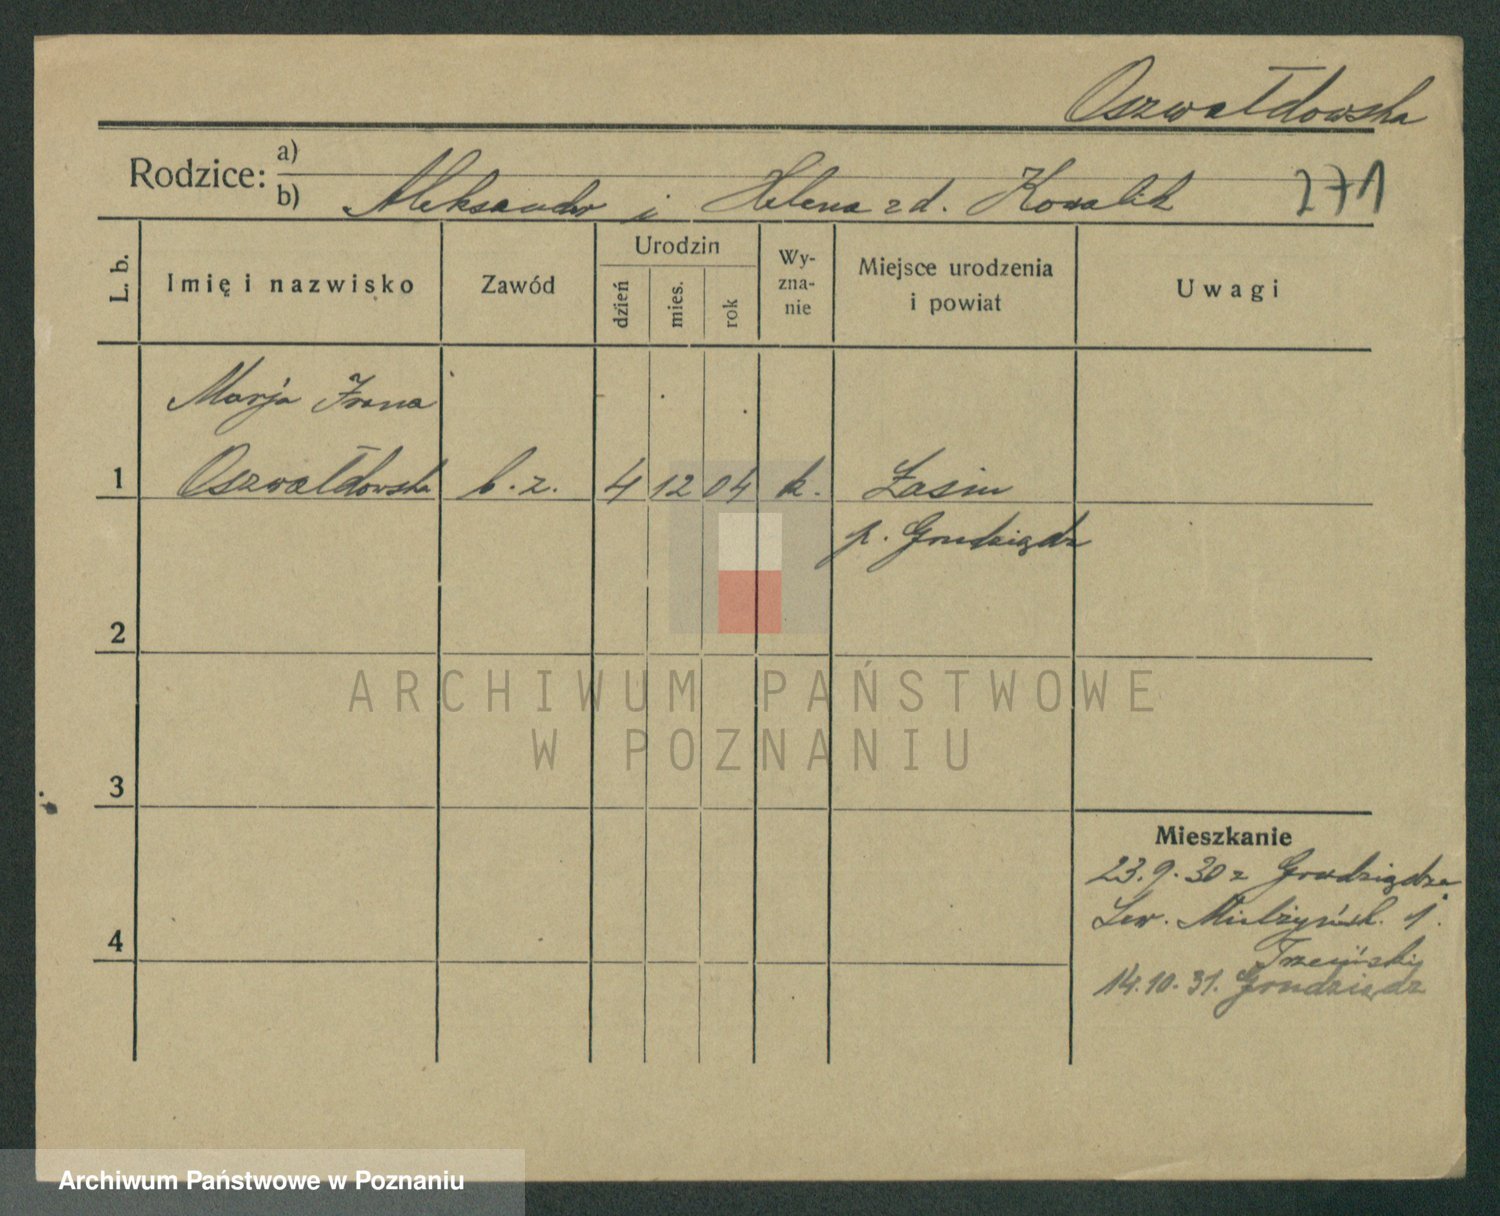 Oszwałdowska
Rodzice: a)
b) Aleksander i Helena z d. Kowalik 271
L. b. Imię i nazwisko Zawód Urodzin dzień mies. rok Wy-zna-nie Miejsce urodzenia i powiat Uwagi
Marja Irena
1 Oszwałdowska b. z. 4 12 04 k. Łasin
p. Grudziądz
2
ARCHIWUM PAŃSTWOWE
W POZNANIU
3
Mieszkanie
23.9.30 z Grudziądza
Sew. Mielżyńsk. 1.
4
14.10.31. Grudziądz
Archiwum Państwowe w Poznaniu